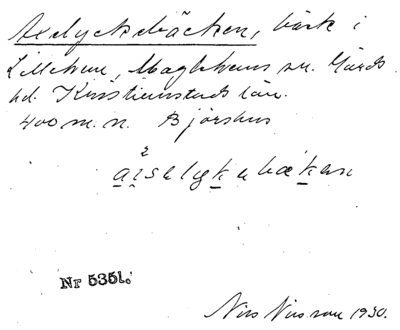 Axelyckebäcken, bäck i
Lillehem, Maglehems sn. Gärds
hd. Kristianstads län.
400 m. n. Björshus
Nr 5351.
Nils Nilsson 1930.